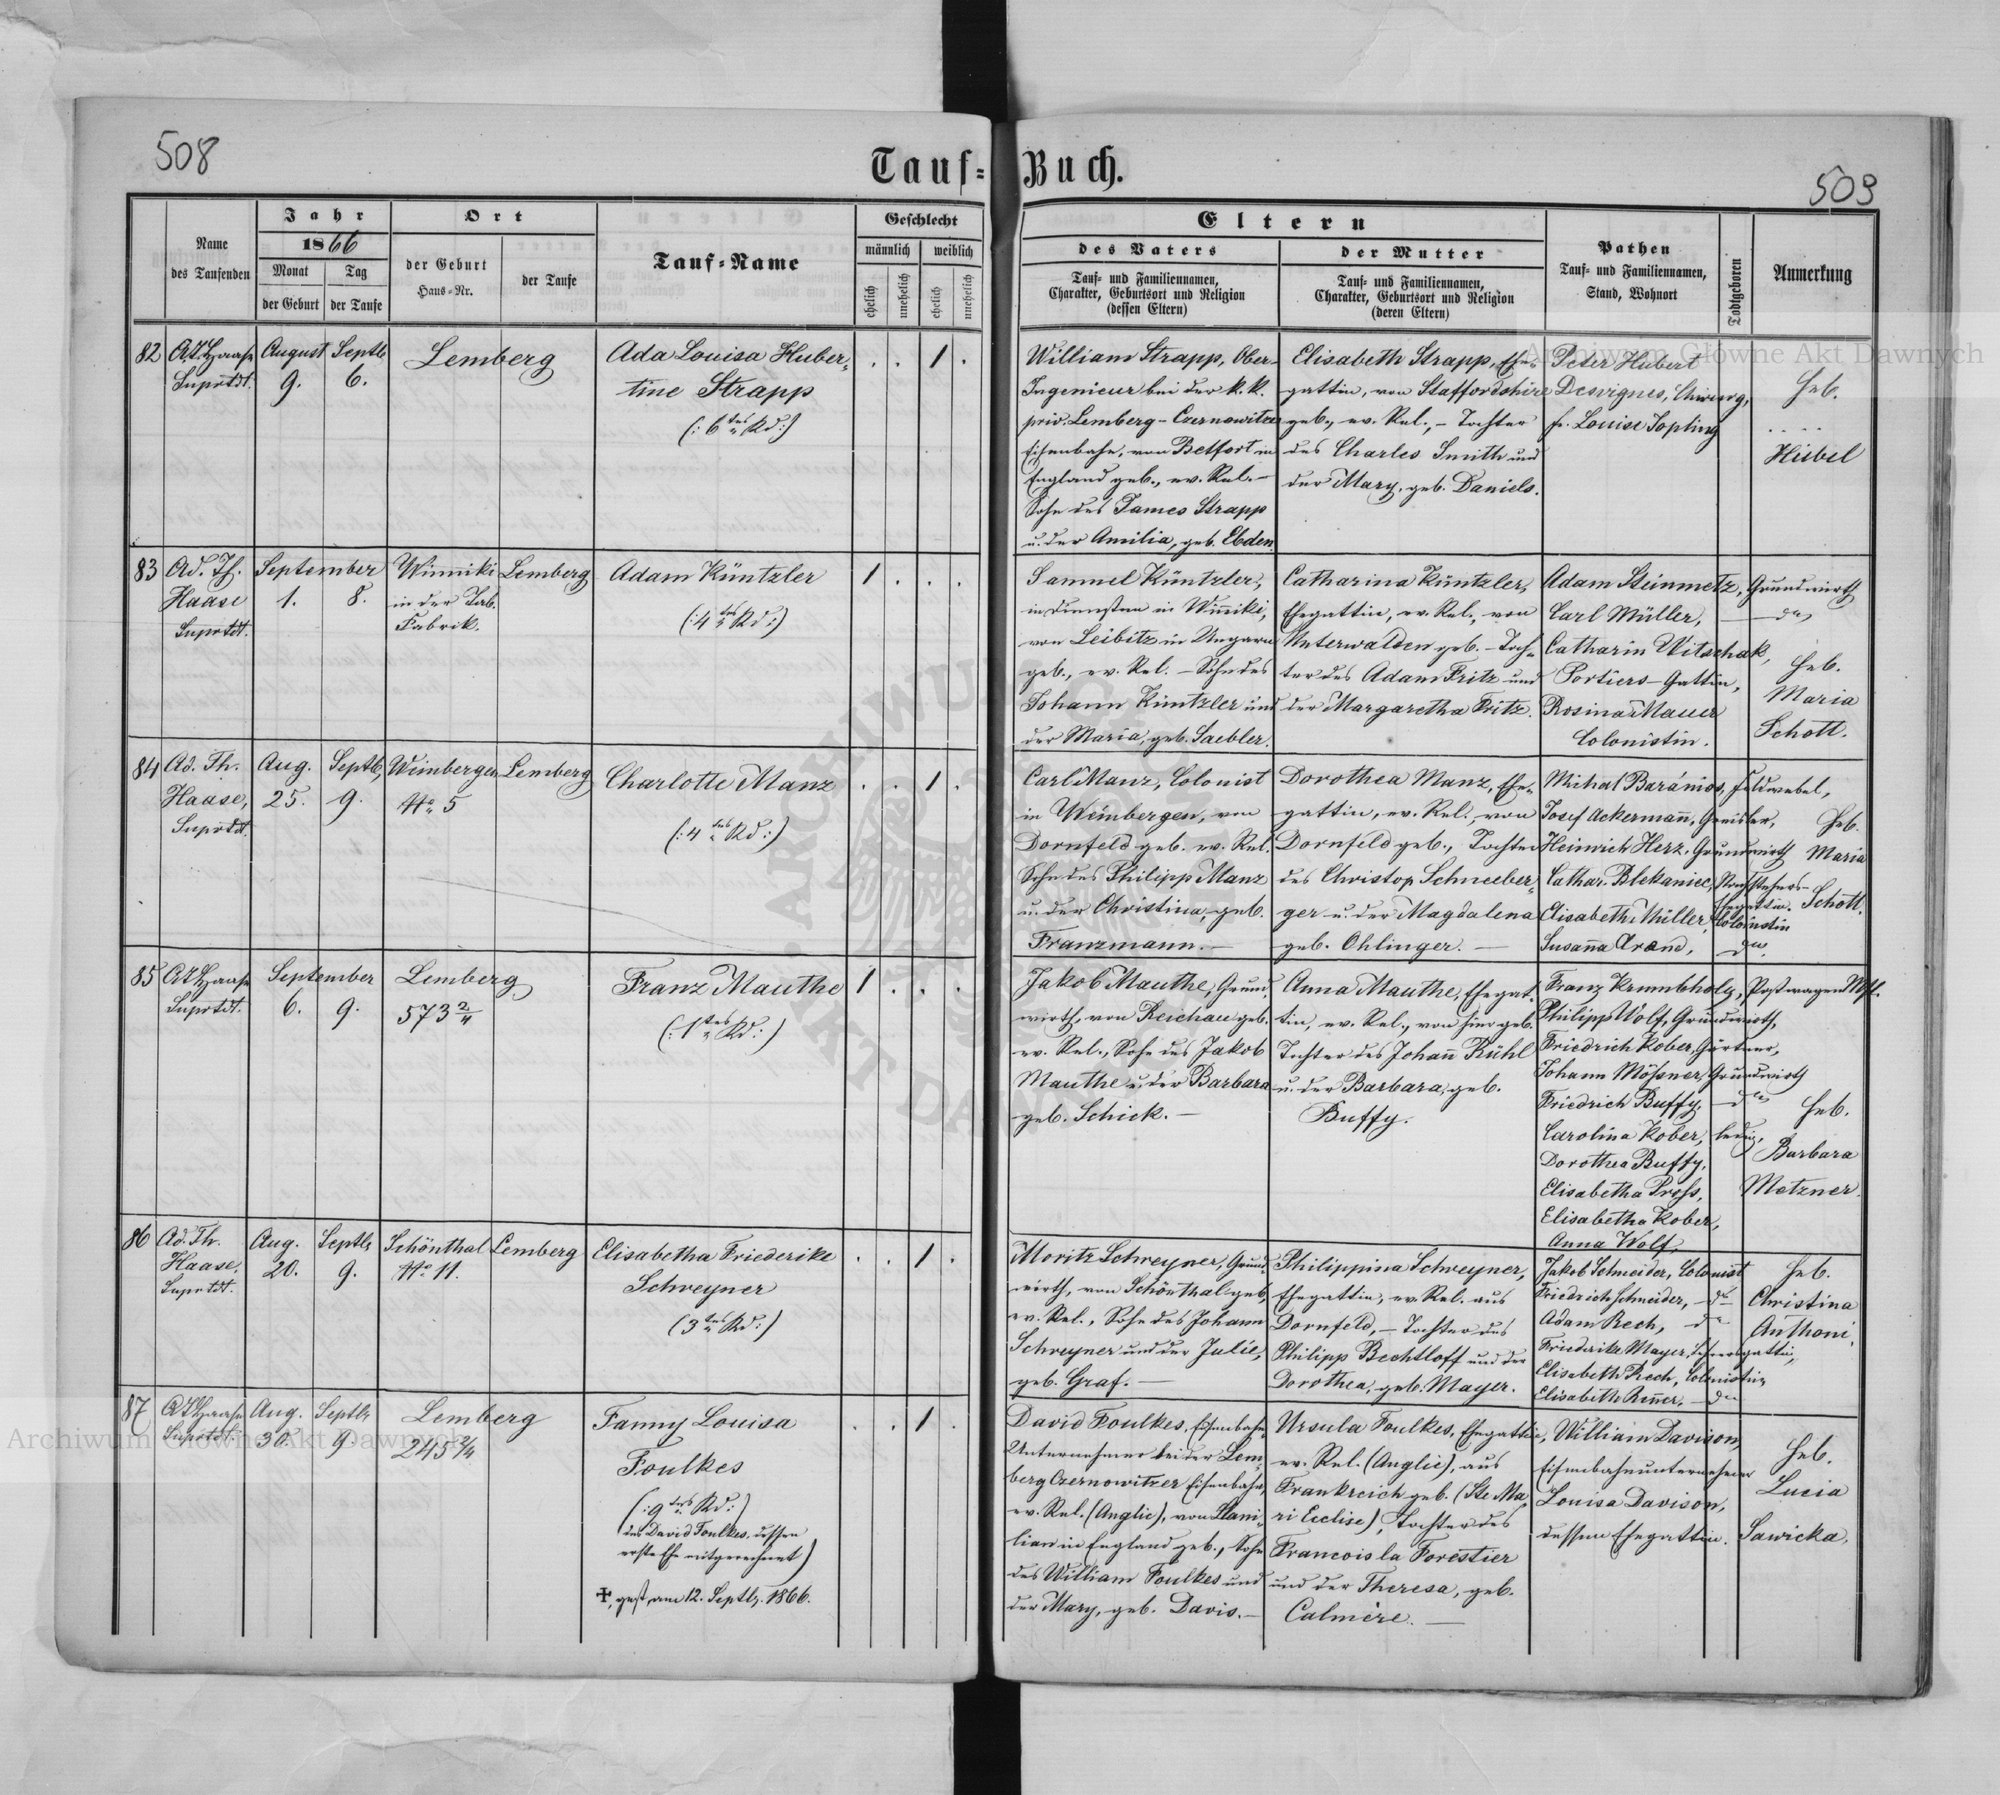 508
Tauf-Buch.
509
Name des Taufenden
Jahr
1866
Monat der Geburt
Tag der Taufe
Ort
der Geburt Haus-Nr.
der Taufe
Tauf-Name
Geschlecht
männlich
weiblich
ehelich
unehelich
ehelich
unehelich
Eltern
des Vaters
Tauf- und Familiennamen,
Charakter, Geburtsort und Religion
(dessen Eltern)
der Mutter
Tauf- und Familiennamen,
Charakter, Geburtsort und Religion
(deren Eltern)
Pathen
Tauf- und Familiennamen,
Stand, Wohnort
Todtgeboren
Anmerkung
82
A Th Haase
Suprtdt.
August
9.
Septb
6.
Lemberg
Ada Louisa Huber-
tine Strapp
(: 6tes Kd :)
1
William Strapp, Ober-
Ingenieur bei der k. k.
priv. Lemberg-Czernowitzer
Eisenbahn, von Betfort in
England geb., ev. Rel. –
Sohn des James Strapp
u. der Amilia, geb. Ebden.
Elisabeth Strapp, Ehe-
gattin, von Staffordshire
geb., ev. Rel., – Tochter
des Charles Smith und
der Mary, geb. Daniels.
Peter Hubert
Desvignes, Chirurg,
fr. Louise Jopling
Heb.
. . . .
Hübel
83
Ad. Th.
Haase
Suprtdt.
September
1.
8.
Winniki
in der Tab.
Fabrik.
Lemberg
Adam Küntzler
(: 4tes Kd :)
1
Samuel Küntzler,
in Diensten in Winniki,
von Leibitz in Ungarn
geb., ev. Rel. – Sohn des
Johann Küntzler und
der Maria, geb. Saebler.
Catharina Küntzler,
Ehegattin, ev. Rel., von
Unterwalden geb. – Toch-
ter des Adam Fritz und
der Margaretha Fritz.
Adam Steinmetz, Grundwirth
Carl Müller, – do
Catharin Witschak,
Portiers-Gattin,
Rosina Mauer
Colonistin.
Heb.
Maria
Schott.
84
Ad. Th.
Haase,
Suprtdt.
Aug.
25.
Septb,
9.
Weinbergen
No 5
Lemberg
Charlotte Manz
(: 4tes Kd :)
1
Carl Manz, Colonist
in Weinbergen, von
Dornfeld geb. ev. Rel.
Sohn des Philipp Manz
u. der Christina, geb.
Franzmann. –
Dorothea Manz, Ehe-
gattin, ev. Rel., von
Dornfeld geb., Tochter
des Christop Schneeber-
ger u. der Magdalena
geb. Ohlinger. –
Michal Baránios, Feldwebel,
Josef Ackermann, Greisler,
Heinrich Herz, Grundwirth
Cathar. Blekaniec,
Ehegattin.
Elisabeth Müller, Colonistin
Susanna Arend, do.
Heb.
Maria
Schott.
85
A Th Haase
Suprtdt.
September
6.
9.
Lemberg
573 2/4
Franz Mauthe
(: 1tes Kd :)
1
Jakob Mauthe, Grund-
wirth, von Reichau geb.
ev. Rel., Sohn des Jakob
Mauthe u. der Barbara
geb. Schick. –
Anna Mauthe, Ehegat-
tin, ev. Rel., von hier geb.
Tochter des Johann Kühl
u. der Barbara, geb.
Buffy.
Franz Krumbholz, Postwagen
Philipp Wolf, Grundwirth,
Friedrich Kober, Gärtner,
Johann Mößner, Grundwirth
Friedrich Buffy, – do
Carolina Kober, ledig,
Dorothea Buffy,
Elisabetha Pross,
Elisabetha Kober,
Anna Wolf,
Heb.
Barbara
Metzner.
86
Ad. Th.
Haase,
Suprtdt.
Aug.
20.
Septb,
9.
Schönthal
No 11.
Lemberg
Elisabetha Friederike
Schreyner
(3tes Kd :)
1
Moritz Schreyner, Grund-
wirth, von Schönthal geb,
ev. Rel., Sohn des Johann
Schreyner und der Julie,
geb. Graf. –
Philippina Schreyner,
Ehegattin, ev. Rel. aus
Dornfeld, – Tochter des
Philipp Bechtloff und der
Dorothea, geb. Mayer.
Jakob Schneider, Colonist
Friedrich Schneider, – do
Adam Rech, do
Friederike Mayer, Lehrersgattin,
Elisabeth Rech, Colonistin
Elisabeth – do
Heb.
Christina
Anthoni.
87
A Th Haase
Suprtdt.
Aug.
30.
Septb,
9.
Lemberg
245 2/4
Fanny Louisa
Foulkes
(: 9tes Kd :)
des David Foulkes, dessen
erste Ehe mitgerechnet)
✝, gest, am 12. Septb. 1866.
1
David Foulkes, Eisenbahn-
Unternehmer bei der Lem-
berg Czernowitzer Eisenbahn,
ev. Rel. (Anglic), von Llani-
lian in England geb., Sohn
des William Foulkes und
der Mary, geb. Davis. –
Ursula Foulkes, Ehegattin,
ev. Rel. (Anglic), aus
Frankreich geb. (Ste Ma-
ri Eclise), Tochter des
Francois la Forestier
und der Theresa, geb.
Calmère. –
William Davison,
Eisenbahnunternehmer
Louisa Davison,
dessen Ehegattin.
Heb.
Lucia
Sawicka.
Archiwum Główne Akt Dawnych
Archiwum Główne Akt Dawnych